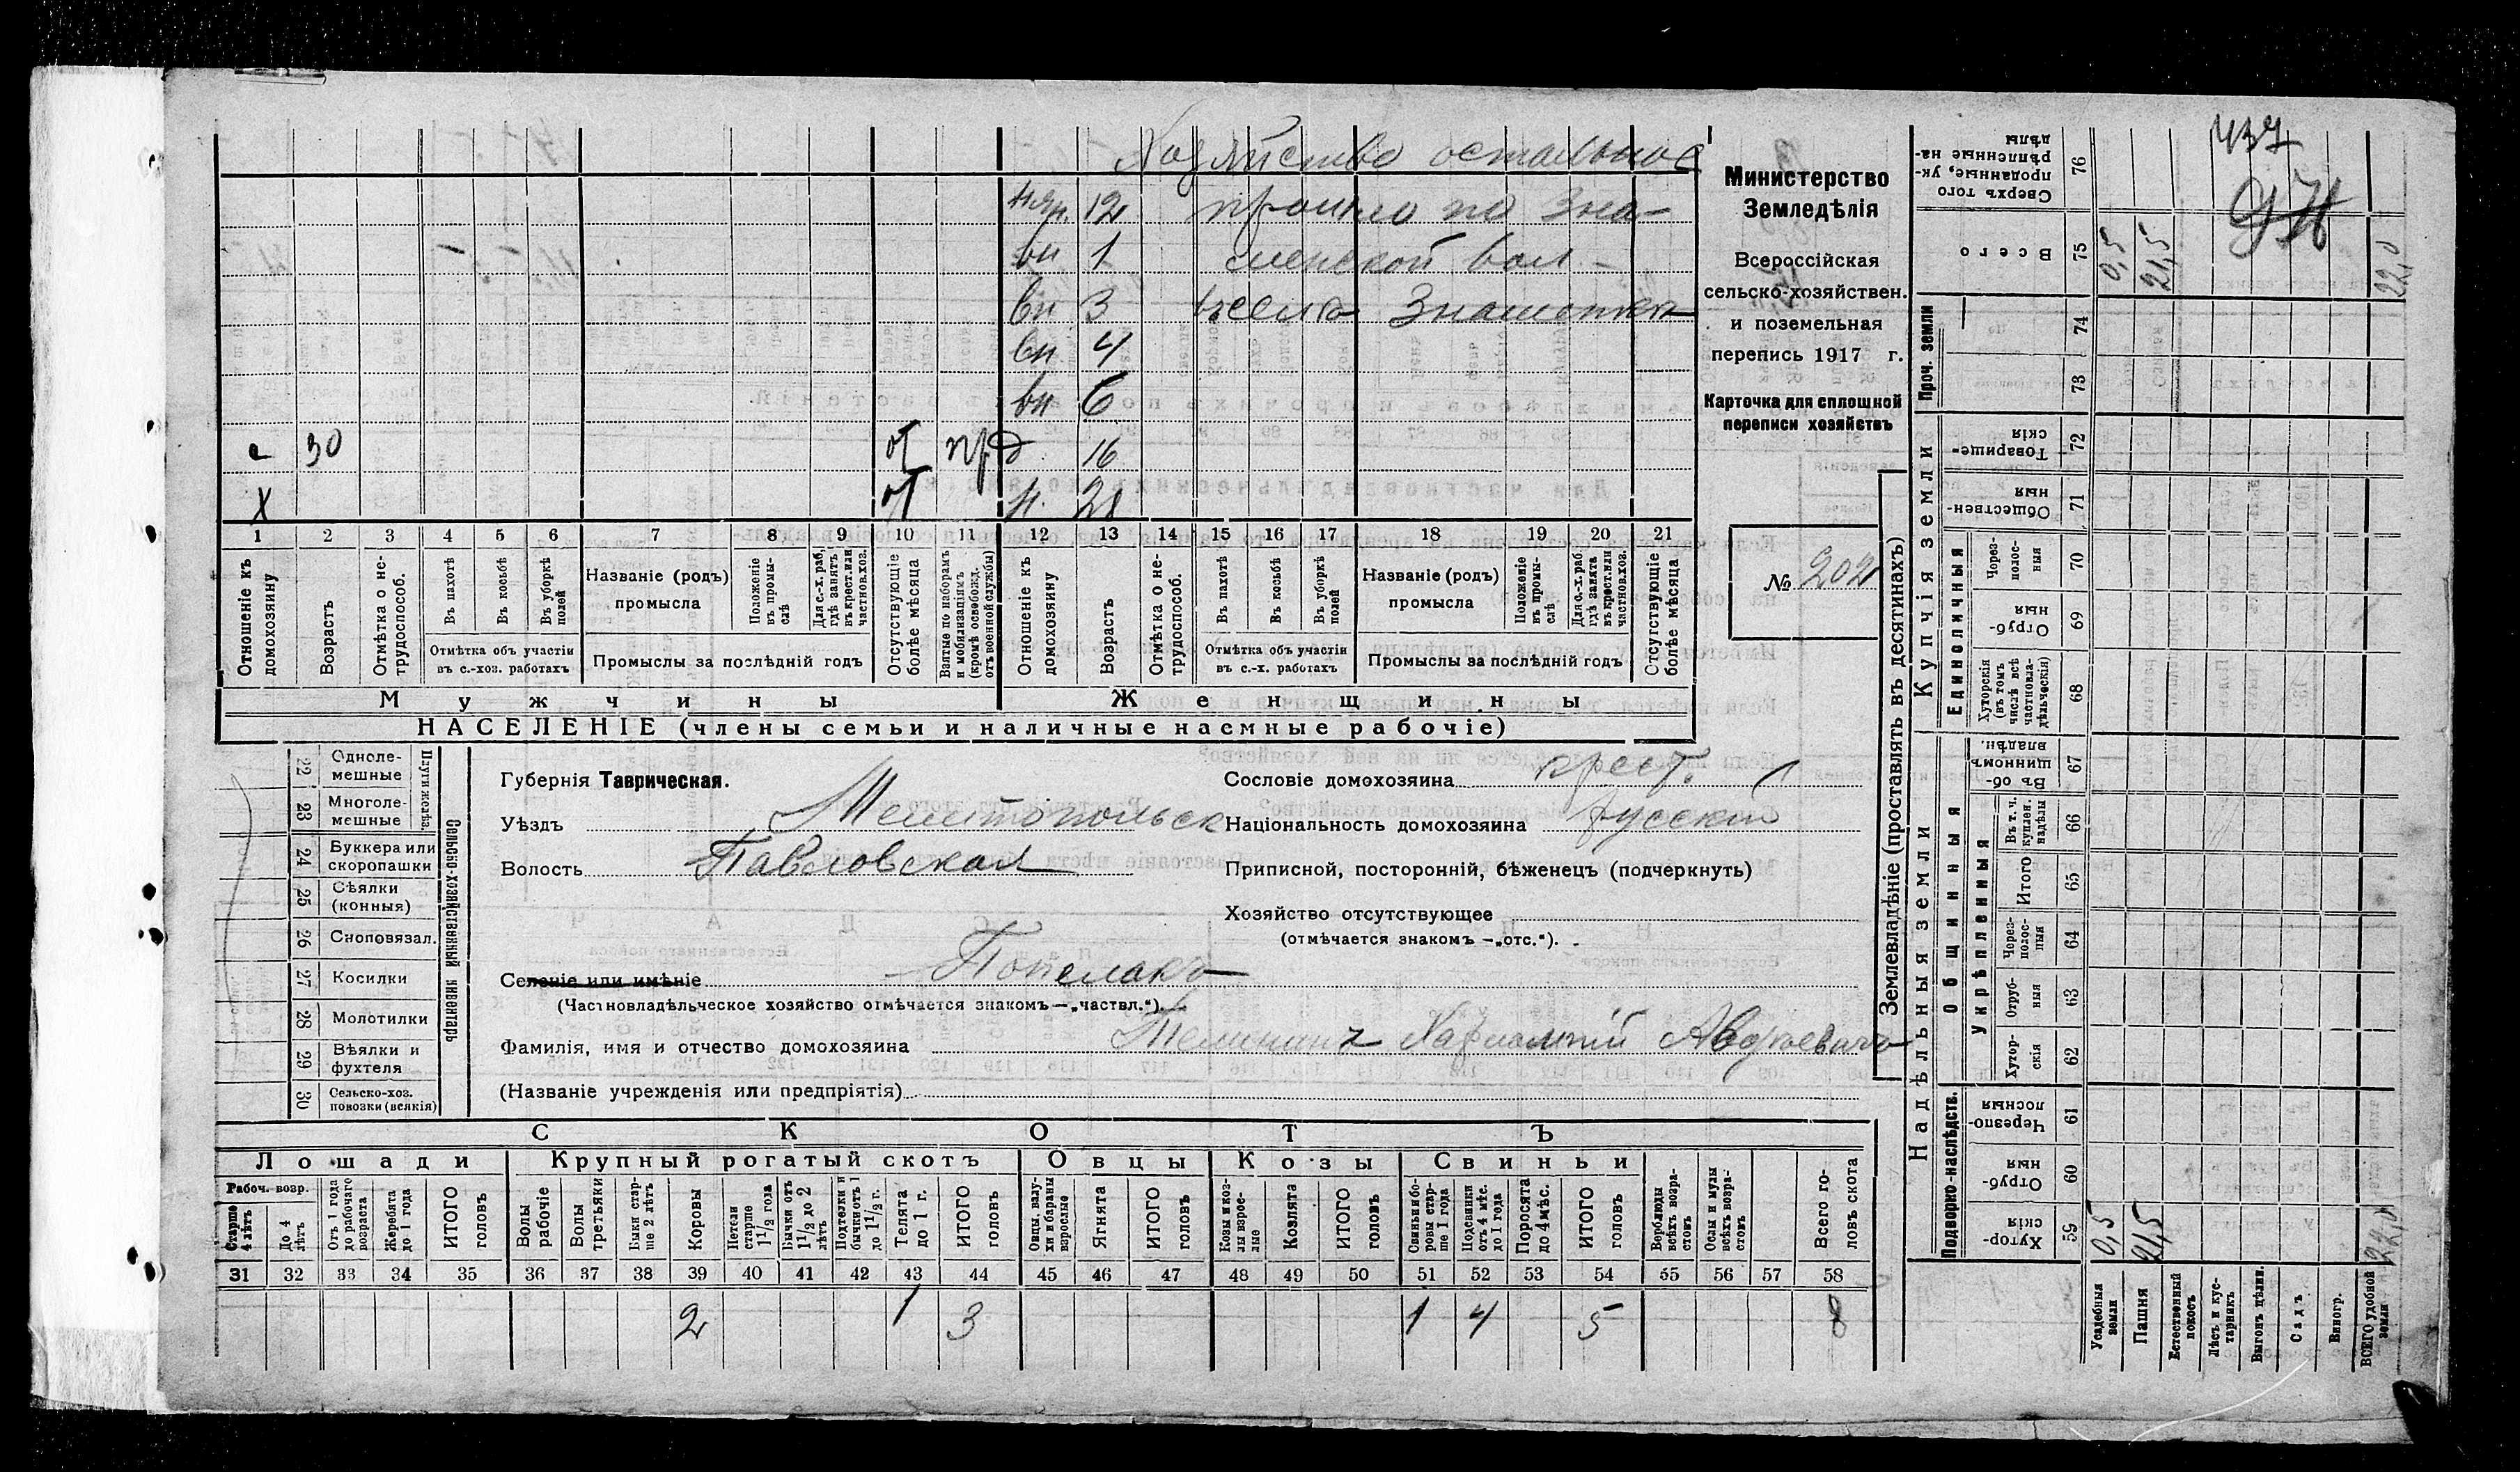 Хозяйство остальное
няр. 12 прошло по Зна-
вн 1 менской вол -
вн 3 въ село Знаменка
вн 4
вн 6
с 30 от пр. д 16
х от н. 28
1 2 3 4 5 6 7 8 9 10 11 12 13 14 15 16 17 18 19 20 21
Отношеніе къ домохозяину
Возрастъ
Отмѣтка о не-трудоспособ.
Въ пахотѣ
Въ косьбѣ
Въ уборкѣ полей
Отмѣтка объ участіи
въ с.-хоз. работахъ
Названіе (родъ)
промысла
Положеніе въ промы-слѣ
Для с.-х. раб, гдѣ занятъ въ крест. или частнов. хоз.
Промыслы за послѣдній годъ
Отсутствующіе болѣе мѣсяца
Взятые по наборамъ и мобилизаціямъ (кромѣ освобожд. отъ военной службы)
Отношеніе къ домохозяину
Возрастъ
Отмѣтка о не-трудоспособ.
Въ пахотѣ
Въ косьбѣ
Въ уборкѣ полей
Отмѣтка объ участіи
въ с.-х. работахъ
Названіе (родъ)
промысла
Положеніе въ промы-слѣ
Для с.-х. раб. гдѣ занята въ крест. или частнов. хоз.
Промыслы за послѣдній годъ
Отсутствующіе болѣе мѣсяца
Мужчины Женщины
НАСЕЛЕНІЕ (члены семьи и наличные наемные рабочіе)
Министерство
Земледѣлія
Всероссійская
сельско-хозяйствен.
и поземельная
перепись 1917 г.
Карточка для сплошной
переписи хозяйствъ
№ 202
22 Одноле-мешные
23 Многоле-мешные
Плуги желѣз.
24 Буккера или скоропашки
25 Сѣялки (конныя)
26 Сноповязал.
27 Косилки
28 Молотилки
29 Вѣялки и фухтеля
30 Сельско-хоз. повозки (всякія)
Сельско-хозяйственный инвентарь
Губернія Таврическая.
Уѣздъ Мелитопольск
Волость Павловская
Сословіе домохозяина крест.
Національность домохозяина русский
Приписной, посторонній, бѣженецъ (подчеркнуть)
Хозяйство отсутствующее
(отмѣчается знакомъ —„отс.“).
Селеніе или имѣніе
(Частновладѣльческое хозяйство отмѣчается знакомъ—„частвл.“).
Фамилія, имя и отчество домохозяина
(Названіе учрежденія или предпріятія)
СКОТЪ
Лошади Крупный рогатый скотъ Овцы Козы Свиньи
Рабоч. возр.
Старше 4 лѣтъ
До 4 лѣтъ
Отъ 1 года до рабочаго возраста
Жеребята до 1 года
ИТОГО головъ
Волы рабочіе
Волы третьяки
Быки стар-ше 2 лѣтъ
Коровы
Нетели старше 1 1/2 года
Бычки отъ 1 1/2 до 2 лѣтъ
Подтелки и бычки отъ 1 до 1 1/2 г.
Телята до 1 г.
ИТОГО головъ
Овцы, валу-хи и бараны взрослые
Ягнята
ИТОГО головъ
Козы и коз-лы взрос-лые
Козлята
ИТОГО головъ
Свиньи и бо-ровы стар-ше 1 года
Подсвинки отъ 4 мѣс. до 1 года
Поросята до 4 мѣс.
ИТОГО головъ
Верблюды всѣхъ возра-стовъ
Ослы и мулы всѣхъ возра-стовъ
Всего го-ловъ скота
31 32 33 34 35 36 37 38 39 40 41 42 43 44 45 46 47 48 49 50 51 52 53 54 55 56 57 58
2 1 3 1 4 5 8
Землевладѣніе (проставлять въ десятинахъ)
Надѣльныя земли
Купчія земли
Проч. земли
Подворно-наслѣдств.
Общинныя
Укрѣпленныя
Единоличныя
Сверхъ того проданные, ук-рѣпленные на-дѣлы 76
Всего 75 0,5 21,5 22,0
74
73
Товарище-скія 72
Обществен-ныя 71
Через-полос-ныя 70
Отруб-ныя 69
Хуторскія (въ томъ числѣ всѣ частновла-дѣльческія) 68
Въ об-щинномъ владѣн. 67
Въ т. ч. куплен. надѣлы 66
Итого 65
Через-полос-ныя 64
Отруб-ныя 63
Хутор-скія 62
Черезпо-лосныя 61
Отруб-ныя 60
Хутор-скія 59 0,5 21,5 22,0
Усадебныя земли
Пашня
Естественный покосъ
Лѣсъ и кус-тарникъ
Выгонъ цѣлин.
Садъ
Виногр.
ВСЕГО удобной земли
437